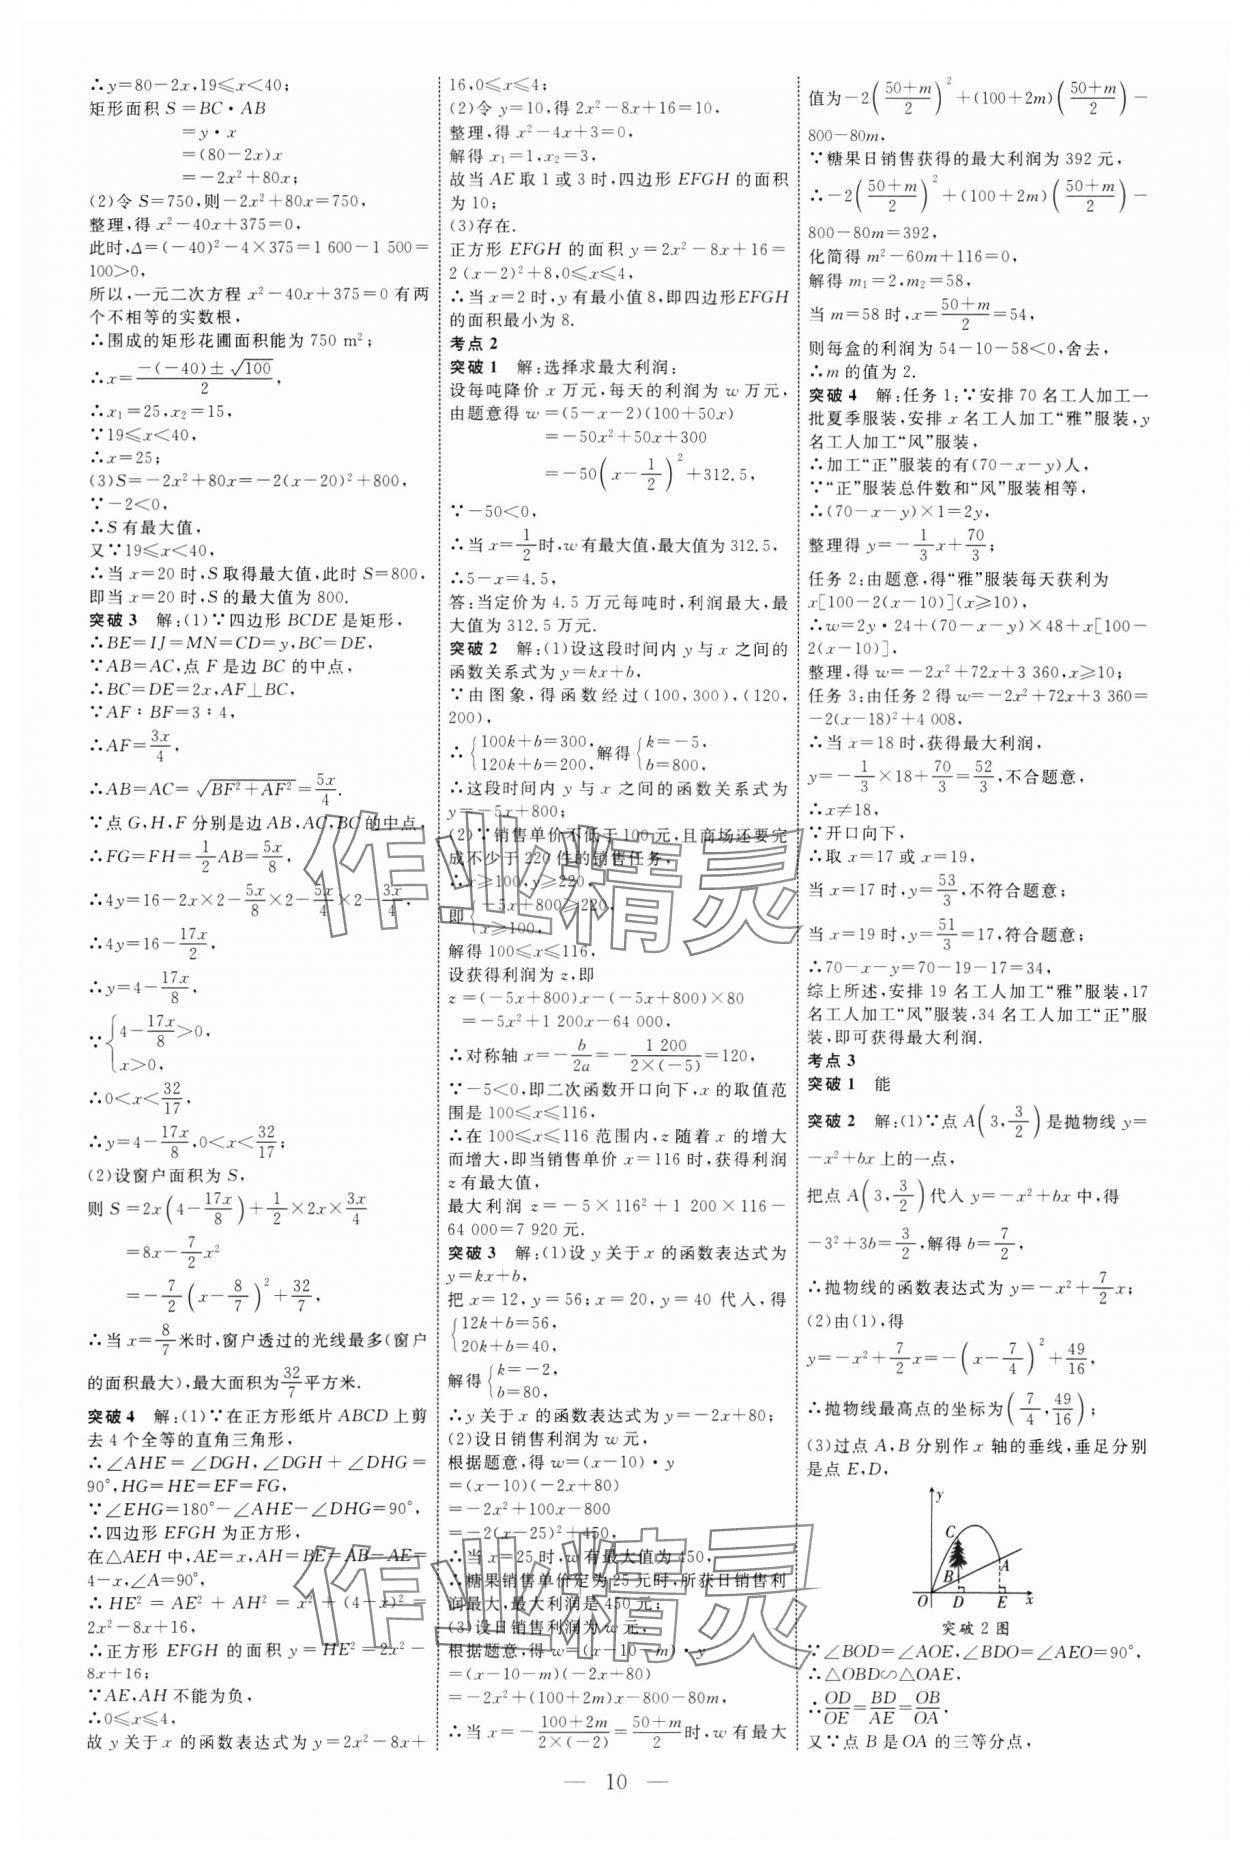 ∴y=80-2x,19≤x<40;
矩形面积 S=BC·AB
=y·x
=(80-2x)x
=-2x²+80x;
(2)令 S=750,则-2x²+80x=750,
整理,得 x²-40x+375=0,
此时,Δ=(-40)²-4×375=1 600-1 500=
100>0,
所以,一元二次方程 x²-40x+375=0 有两
个不相等的实数根,
∴围成的矩形花圃面积能为 750 m²;
∴x=(-(-40)±√100)/2,
∴x₁=25,x₂=15,
∵19≤x<40,
∴x=25;
(3)S=-2x²+80x=-2(x-20)²+800,
∵-2<0,
∴S 有最大值,
又∵19≤x<40,
∴当 x=20 时,S 取得最大值,此时 S=800,
即当 x=20 时,S 的最大值为 800.
突破 3 解:(1)∵四边形 BCDE 是矩形,
∴BE=IJ=MN=CD=y,BC=DE,
∵AB=AC,点 F 是边 BC 的中点,
∴BC=DE=2x,AF⊥BC,
∵AF∶BF=3∶4,
∴AF=3x/4,
∴AB=AC=√(BF²+AF²)=5x/4.
∵点 G,H,F 分别是边 AB,AC,BC 的中点,
∴FG=FH=1/2AB=5x/8,
∴4y=16-2x×2-5x/8×2-5x/4×2-3x/4,
∴4y=16-17x/2,
∴y=4-17x/8,
∵{4-17x/8>0,
x>0,
∴0<x<32/17,
∴y=4-17x/8,0<x<32/17;
(2)设窗户面积为 S,
则 S=2x(4-17x/8)+1/2×2x×3x/4
=8x-7/2x²
=-7/2(x-8/7)²+32/7,
∴当 x=8/7米时,窗户透过的光线最多(窗户
的面积最大),最大面积为32/7平方米.
突破 4 解:(1)∵在正方形纸片 ABCD 上剪
去 4 个全等的直角三角形,
∴∠AHE=∠DGH,∠DGH+∠DHG=
90°,HG=HE=EF=FG,
∵∠EHG=180°-∠AHE-∠DHG=90°,
∴四边形 EFGH 为正方形,
在△AEH 中,AE=x,AH=BE=AB-AE=
4-x,∠A=90°,
∴HE²=AE²+AH²=x²+(4-x)²=
2x²-8x+16,
∴正方形 EFGH 的面积 y=HE²=2x²-
8x+16;
∵AE,AH 不能为负,
∴0≤x≤4,
故 y 关于 x 的函数表达式为 y=2x²-8x+
16,0≤x≤4;
(2)令 y=10,得 2x²-8x+16=10,
整理,得 x²-4x+3=0,
解得 x₁=1,x₂=3,
故当 AE 取 1 或 3 时,四边形 EFGH 的面积
为 10;
(3)存在.
正方形 EFGH 的面积 y=2x²-8x+16=
2(x-2)²+8,0≤x≤4,
∴当 x=2 时,y 有最小值 8,即四边形EFGH
的面积最小为 8.
考点 2
突破 1 解:选择求最大利润:
设每吨降价 x 万元,每天的利润为 w 万元,
由题意得 w=(5-x-2)(100+50x)
=-50x²+50x+300
=-50(x-1/2)²+312.5,
∵-50<0,
∴当 x=1/2时,w 有最大值,最大值为 312.5,
∴5-x=4.5,
答:当定价为 4.5 万元每吨时,利润最大,最
大值为 312.5 万元.
突破 2 解:(1)设这段时间内 y 与 x 之间的
函数关系式为 y=kx+b,
∵由图象,得函数经过(100,300),(120,
200),
∴{100k+b=300, 解得{k=-5,
120k+b=200, b=800,
∴这段时间内 y 与 x 之间的函数关系式为
y=-5x+800;
(2)∵销售单价不低于 100 元,且商场还要完
成不少于 220 件的销售任务,
∴x≥100,y≥220,
即{-5x+800≥220,
x≥100,
解得 100≤x≤116,
设获得利润为 z,即
z=(-5x+800)x-(-5x+800)×80
=-5x²+1 200x-64 000,
∴对称轴 x=-b/2a=-1 200/(2×(-5))=120,
∵-5<0,即二次函数开口向下,x 的取值范
围是 100≤x≤116,
∴在 100≤x≤116 范围内,z 随着 x 的增大
而增大,即当销售单价 x=116 时,获得利润
z 有最大值,
最大利润 z=-5×116²+1 200×116-
64 000=7 920 元.
突破 3 解:(1)设 y 关于 x 的函数表达式为
y=kx+b,
把 x=12,y=56;x=20,y=40 代入,得
{12k+b=56,
20k+b=40,
解得{k=-2,
b=80,
∴y 关于 x 的函数表达式为 y=-2x+80;
(2)设日销售利润为 w 元,
根据题意,得 w=(x-10)·y
=(x-10)(-2x+80)
=-2x²+100x-800
=-2(x-25)²+450,
∴当 x=25 时,w 有最大值为 450,
∴糖果销售单价定为 25 元时,所获日销售利
润最大,最大利润是 450 元;
(3)设日销售利润为 w 元,
根据题意,得 w=(x-10-m)·y
=(x-10-m)(-2x+80)
=-2x²+(100+2m)x-800-80m,
∴当 x=-(100+2m)/(2×(-2))=(50+m)/2时,w 有最大
值为-2((50+m)/2)²+(100+2m)((50+m)/2)-
800-80m,
∵糖果日销售获得的最大利润为 392 元,
∴-2((50+m)/2)²+(100+2m)((50+m)/2)-
800-80m=392,
化简得 m²-60m+116=0,
解得 m₁=2,m₂=58,
当 m=58 时,x=(50+m)/2=54,
则每盒的利润为 54-10-58<0,舍去,
∴m 的值为 2.
突破 4 解:任务 1:∵安排 70 名工人加工一
批夏季服装,安排 x 名工人加工“雅”服装,y
名工人加工“风”服装,
∴加工“正”服装的有(70-x-y)人,
∵“正”服装总件数和“风”服装相等,
∴(70-x-y)×1=2y,
整理得 y=-1/3x+70/3;
任务 2:由题意,得“雅”服装每天获利为
x[100-2(x-10)](x≥10),
∴w=2y·24+(70-x-y)×48+x[100-
2(x-10)],
整理,得 w=-2x²+72x+3 360,x≥10;
任务 3:由任务 2 得 w=-2x²+72x+3 360=
-2(x-18)²+4 008,
∴当 x=18 时,获得最大利润,
y=-1/3×18+70/3=52/3,不合题意,
∴x≠18,
∵开口向下,
∴取 x=17 或 x=19,
当 x=17 时,y=53/3,不符合题意;
当 x=19 时,y=51/3=17,符合题意;
∴70-x-y=70-19-17=34,
综上所述,安排 19 名工人加工“雅”服装,17
名工人加工“风”服装,34 名工人加工“正”服
装,即可获得最大利润.
考点 3
突破 1 能
突破 2 解:(1)∵点 A(3,3/2)是抛物线 y=
-x²+bx 上的一点,
把点 A(3,3/2)代入 y=-x²+bx 中,得
-3²+3b=3/2,解得 b=7/2,
∴抛物线的函数表达式为 y=-x²+7/2x;
(2)由(1),得
y=-x²+7/2x=-(x-7/4)²+49/16,
∴抛物线最高点的坐标为(7/4,49/16);
(3)过点 A,B 分别作 x 轴的垂线,垂足分别
是点 E,D,
y
C
B
A
O D E x
突破 2 图
∵∠BOD=∠AOE,∠BDO=∠AEO=90°,
∴△OBD∽△OAE,
∴OD/OE=BD/AE=OB/OA,
又∵点 B 是 OA 的三等分点,
— 10 —
作业精灵
作业精灵